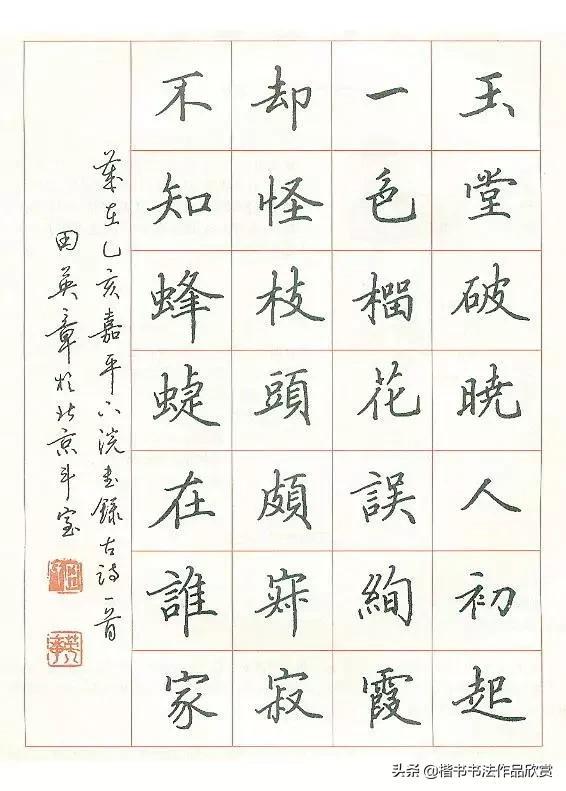 玉堂破曉人初起
一色榴花誤絢霞
却怪枝頭頗寂寂
不知蜂蜨在誰家
歲在乙亥嘉平下浣書錄古詩一首
田英章於北京斗室
头条@楷书书法作品欣赏